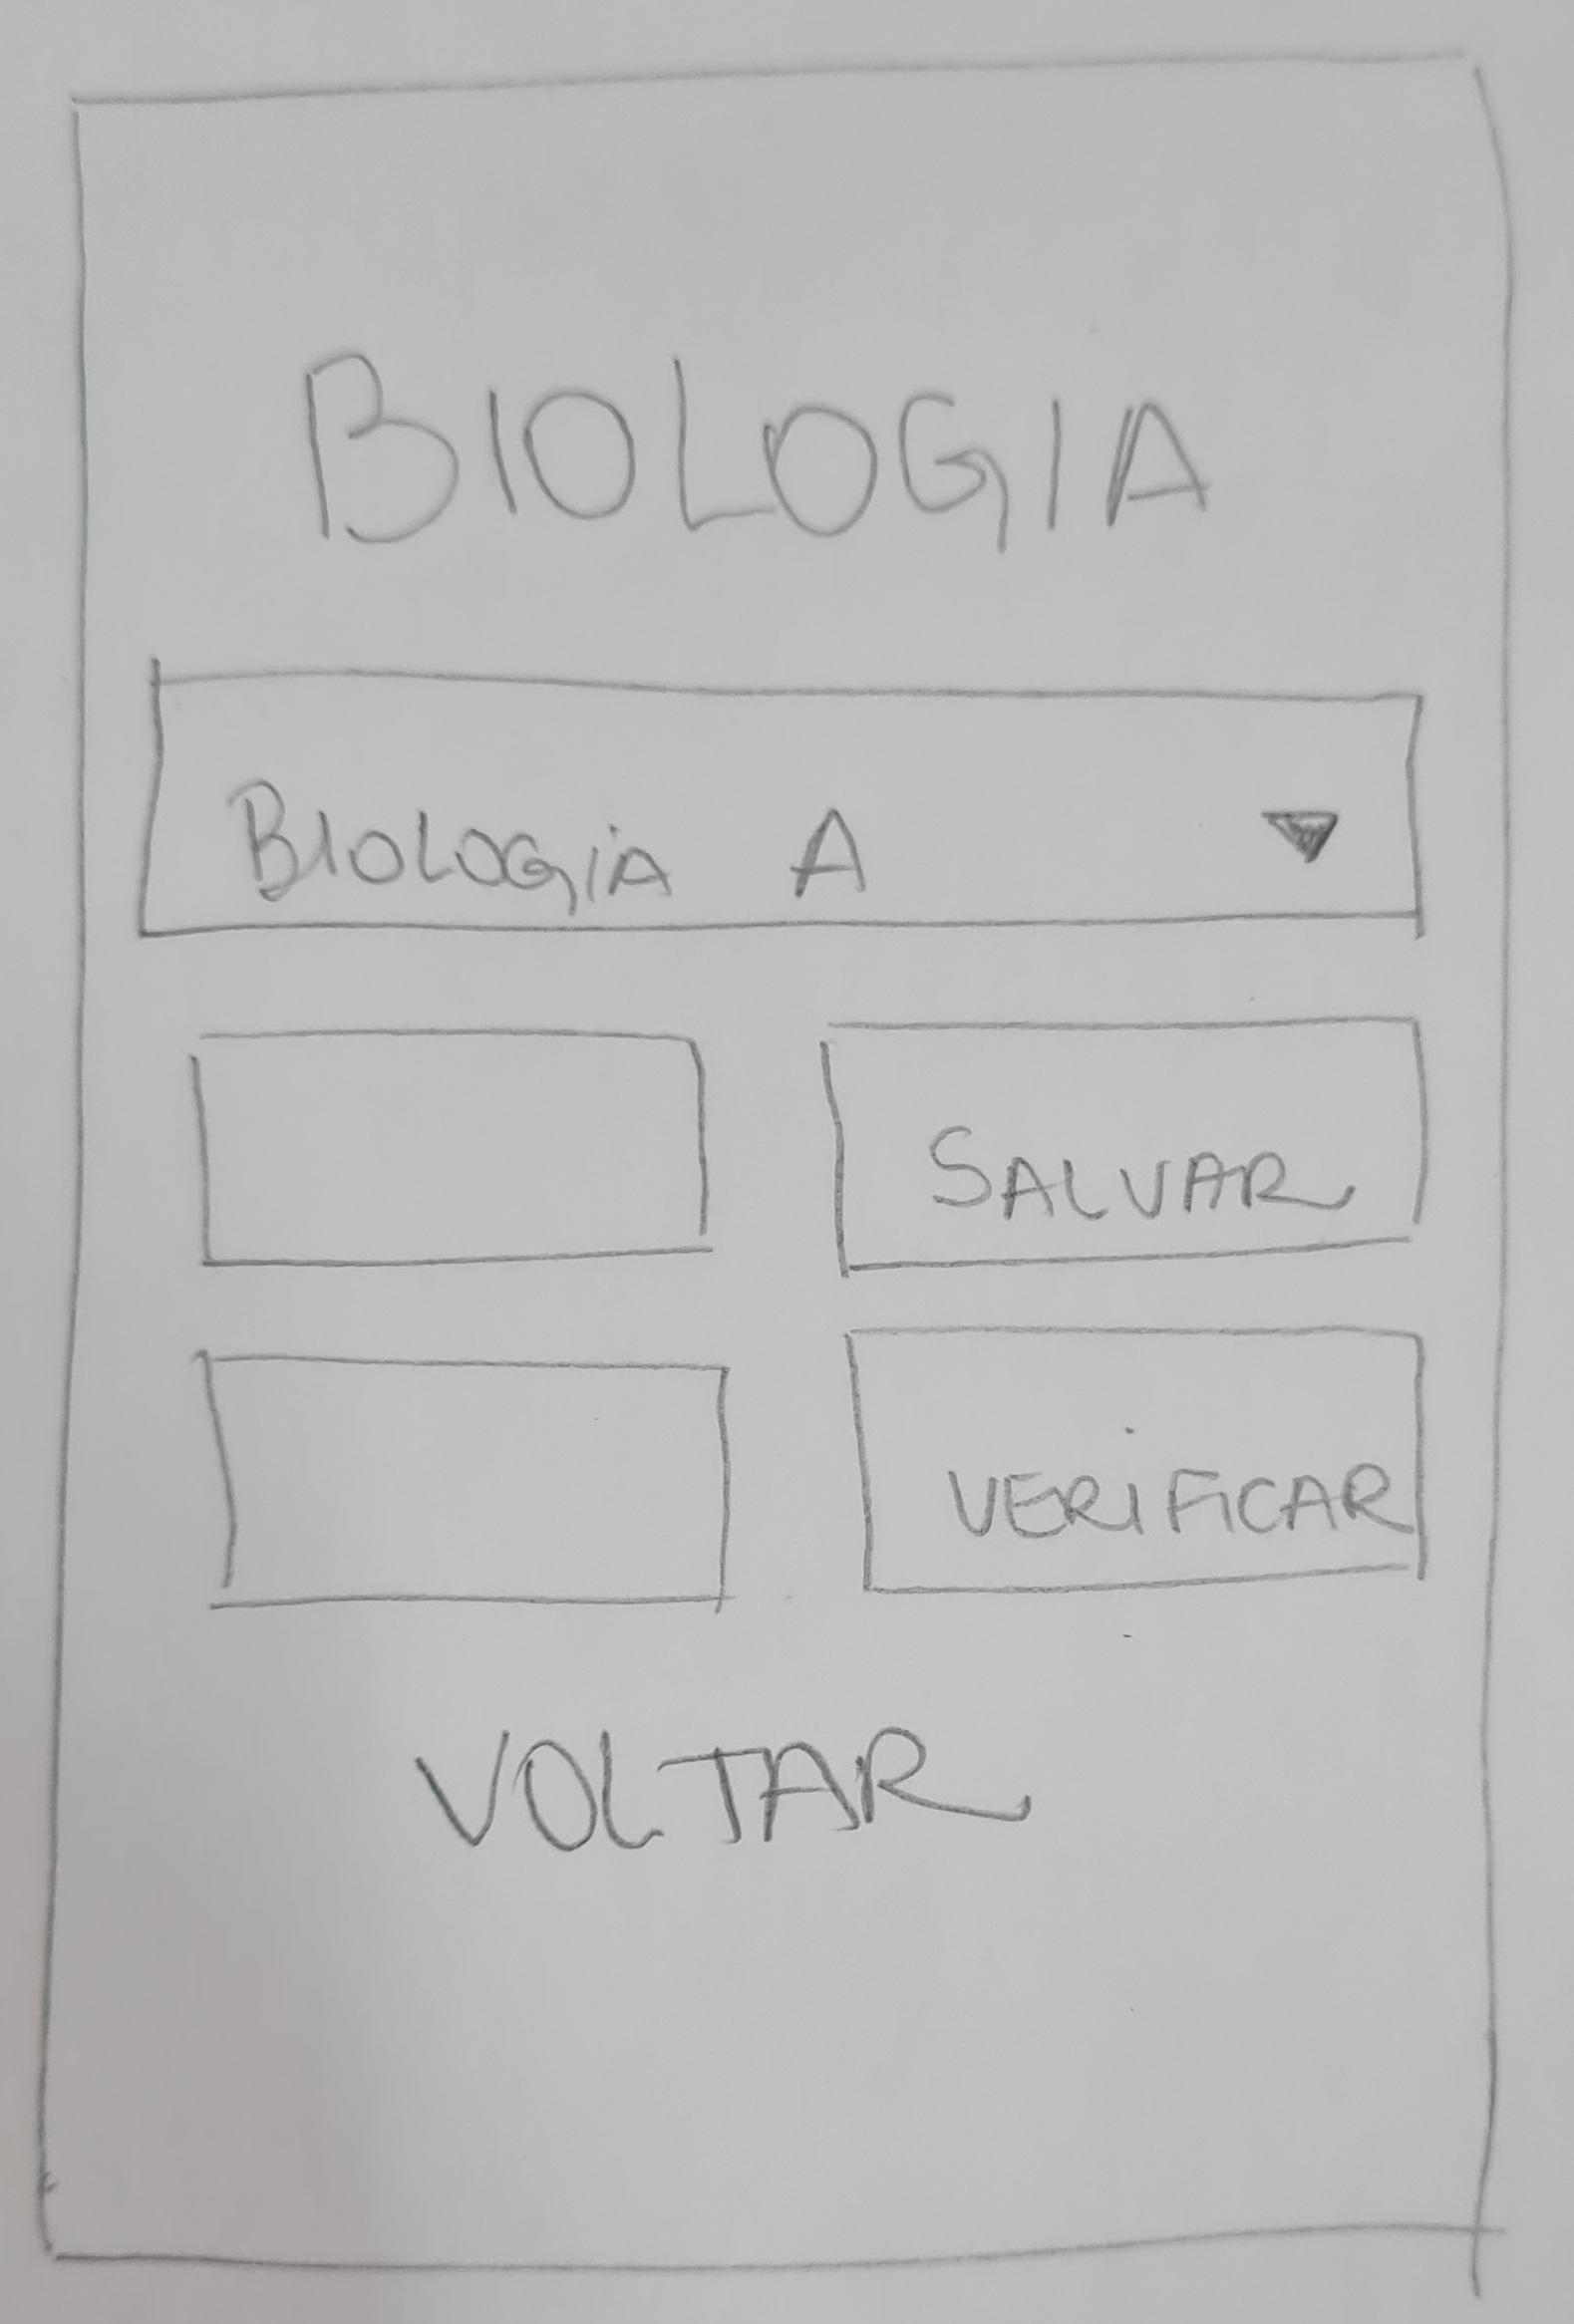 BIOLOGIA
BIOLOGIA A
SALVAR
VERIFICAR
VOLTAR